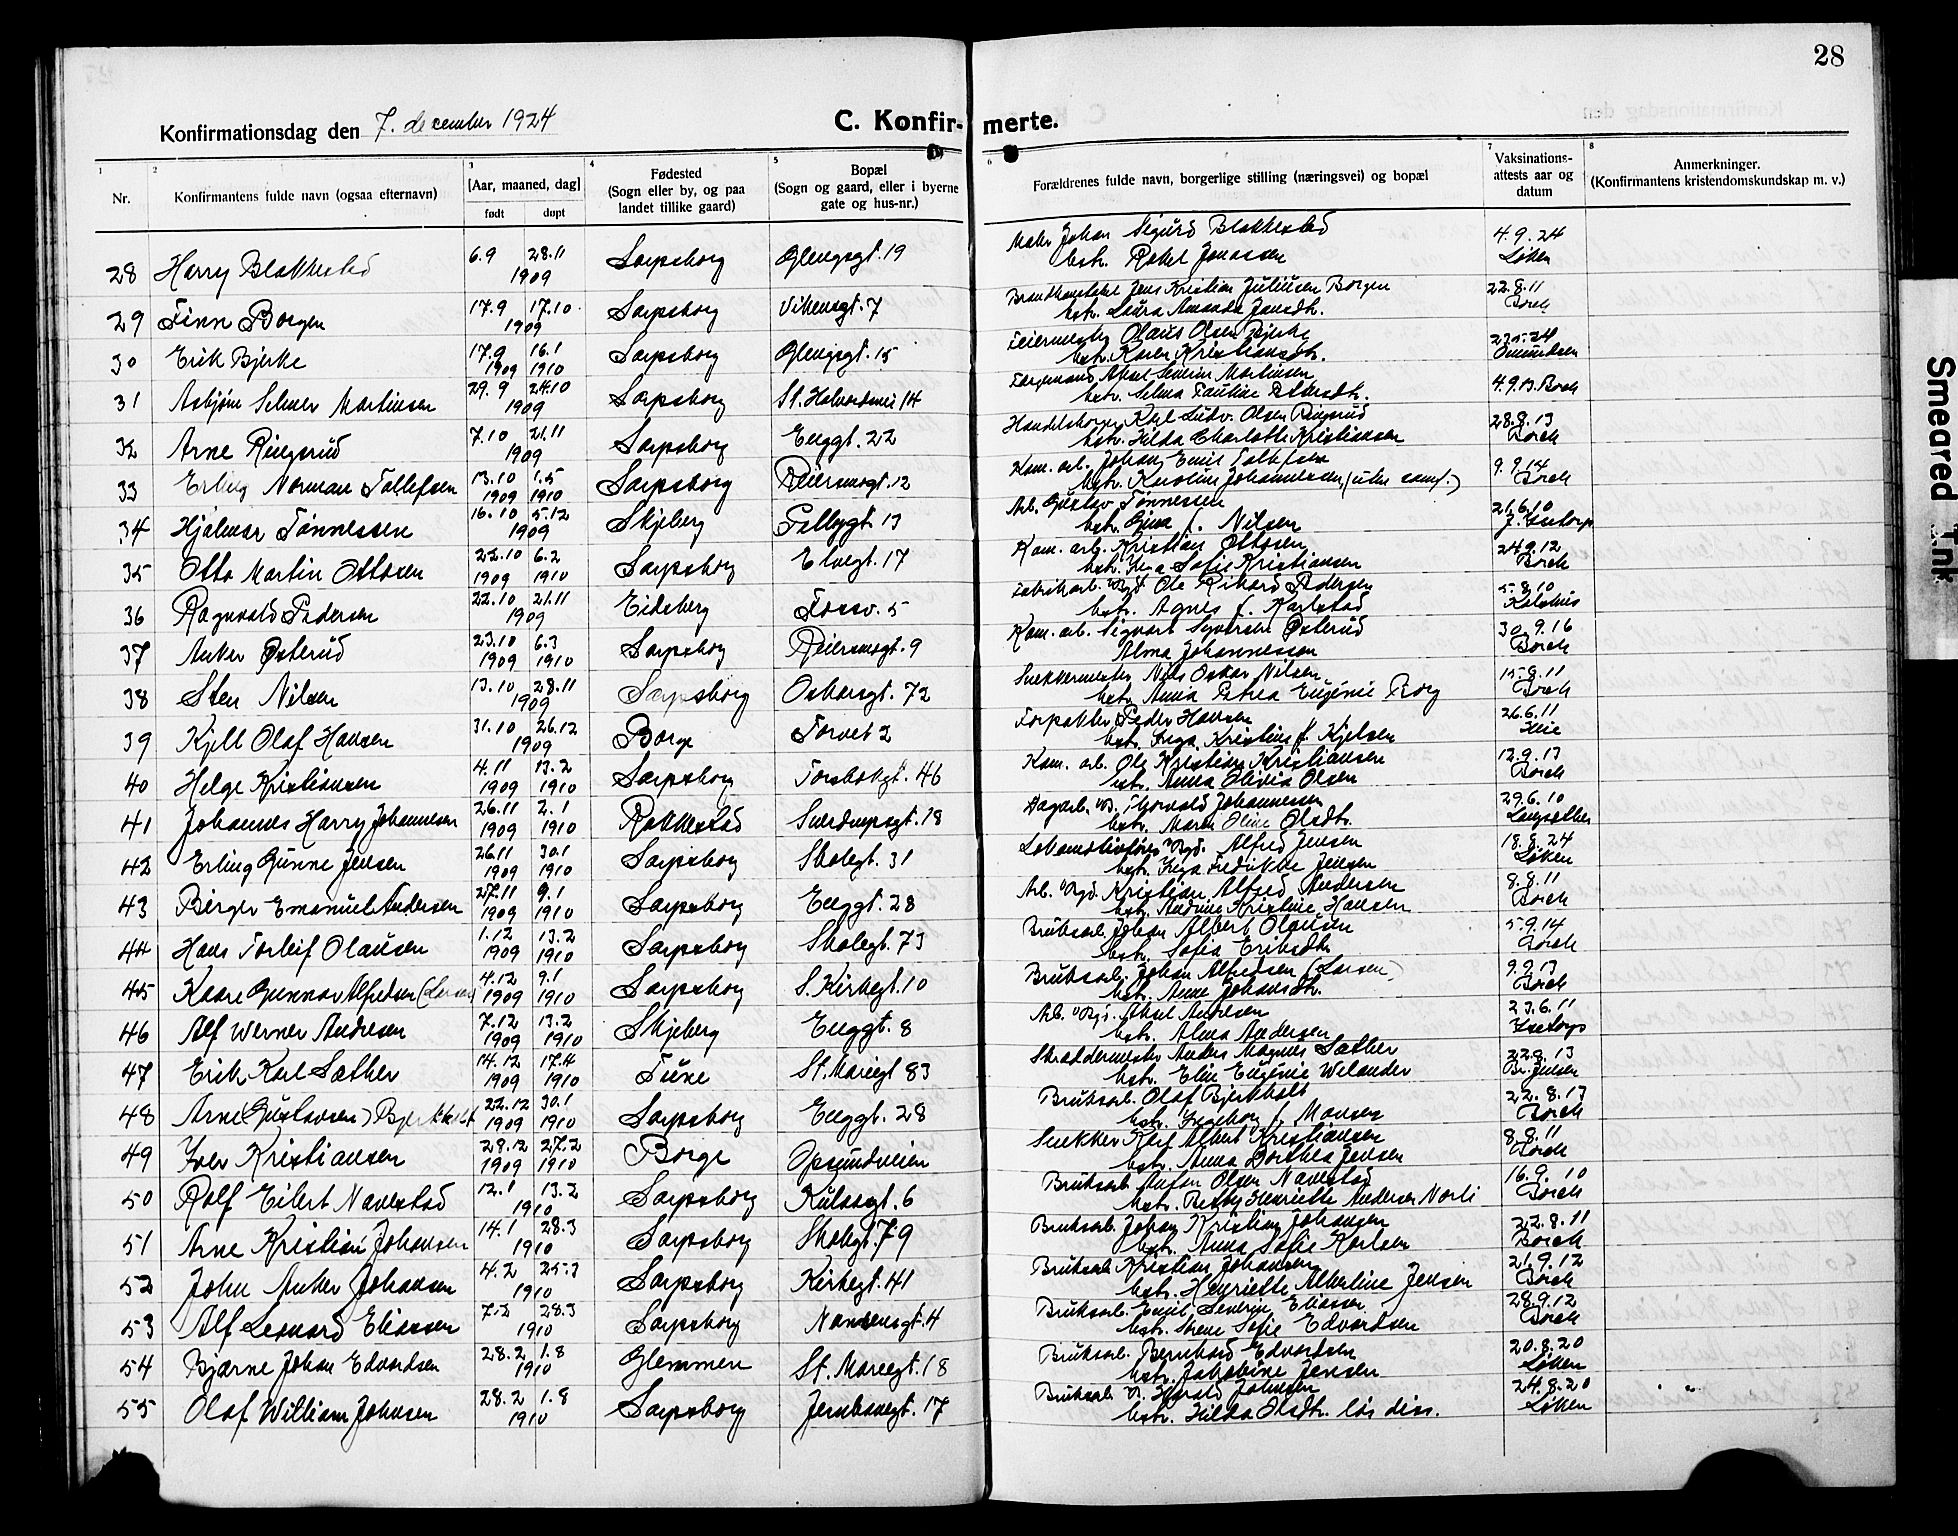 28
Konfirmationsdag den 7. december 1924
C. Konfirmerte.
1 2 3 4 5 6 7 8
Nr. Konfirmantens fulde navn (ogsaa efternavn) [Aar, maaned, dag] født døpt Fødested (Sogn eller by, og paa landet tillike gaard) Bopæl (Sogn og gaard, eller i byerne gate og hus-nr.) Forældrenes fulde navn, borgerlige stilling (næringsvei) og bopæl Vaksinations-attests aar og datum Anmerkninger. (Konfirmantens kristendomskundskap m. v.)
28 Harry Blakkestad 6.9 28.11 1909 Sarpsborg Glengsgt. 19 Maler Johan Sigurd Blakkestad hstr. Rakel Jonassen 4.9.24 Løken
29 Finn Borgen 17.9 17.10 1909 Sarpsborg Vikensgt. 7 Jens Kristian Juliussen Borgen hstr. Laura Amanda Jensdtr. 22.8.11 Borch
30 Erik Bjerke 17.9 1909 16.1 1910 Sarpsborg Glengsgt. 15 Feiermester Olaus Olsen Bjerke hstr. Karen Kristiansdtr. Omundsen
31 Asbjørn Martinsen 29.9 24.10 1909 Sarpsborg St. Halvardsvei 14 Aksel Severin Martinsen hstr. Selma Pauline 4.9.13. Borch
32 Arne Ringsrud 7.10 21.11 1909 Sarpsborg Enggt. 22 Karl Ludv. Olsen Ringsrud hstr. Hilda Charlotte Kristiansen 28.8.13 Borch
33 Erling Norman Tollefsen 13.10 1909 1.5 1910 Sarpsborg Reiersensgt. 12 Kom. arb. Johan Emil Tollefsen hstr. Karoline Johannessen (uten samf.) 9.9.14 Borch
34 Hjalmar Tønnessen 16.10 5.12 1909 Skjeberg Fallygt. 13 Arb. Gustav Tønnessen hstr. Gina f. Nilsen 21.6.10
35 Otto Martin Ottosen 22.10 1909 6.2 1910 Sarpsborg Elvegt. 17 Kom. arb. Kristian Ottosen hstr. Sofie Kristiansen 24.9.12 Borch
36 Ragnvald Pedersen 22.10 21.11 1909 Eidsberg Fossv. 5 Fabrikarb. Ole Rikard Pedersen hstr. Agnes f. Karlstad 5.8.10
37 Anker Østerud 23.10 1909 6.3 1910 Sarpsborg Reiersensgt. 9 Kom. arb. Sigvart Syversen Østerud Alma Johannesson 30.9.16 Borch
38 Sten Nilsen 13.10 28.11 1909 Sarpsborg Oskarsgt. 72 Snekkermester Nils Oskar Nilsen hstr. Anna Petrea Eugénie Borg 15.8.11 Borch
39 Kjell Olaf Hansen 31.10 26.12 1909 Borge Torvet 2 Forpakter Peder Hansen hstr. Inga Kristine f. Kjelsen 26.6.11
40 Helge Kristiansen 4.11 1909 13.2 1910 Sarpsborg Torsbekgt. 46 Kom. arb. Ole Kristian Kristiansen hstr. Anna Olivia Olsen 12.9.13 Borch
41 Johannes Harry Johannesen 26.11 1909 2.1 1910 Rakkestad Sverdrupsgt. 18 Dagarb. Thorvald Johannessen hstr. Maren Oline Olsdtr. 29.6.10 Langsether
42 Erling Gunne Jensen 26.11 1909 30.1 1910 Sarpsborg Skolegt. 31 Lokomotivfører Alfred Jensen hstr. Inga Fredrikke Jensen 18.8.24 Løken
43 Birger Emanuel Andersen 27.11 1909 9.1 1910 Sarpsborg Enggt. 28 Arb. Kristian Alfred Andersen hstr. Andrine Kristine Hansen 8.8.11 Borch
44 Hans Torleif Olausen 1.12 1909 13.2 1910 Sarpsborg Skolegt. 73 Bruksarb. Johan Albert Olausen hstr. Sofia Eriksdtr. 5.9.14 Borch
45 Kaare Gunnar Alfredsen (Larsen) 4.12 1909 9.1 1910 Sarpsborg S. Kirkegt. 10 Bruksarb. Johan Alfredsen (Larsen) hstr. Anna Johansdtr. 9.9.13 Borch
46 Alf Werner Andresen 7.12 1909 13.2 1910 Skjeberg Enggt. 8 Arb. Aksel Andresen hstr. Alma Andersen 23.6.11
47 Erik Karl Sæther 14.12 1909 17.4 1910 Tune St. Mariegt 83 Skræddermester Anders Magnus Sæther hstr. Elin Eugénie Welander 22.9.13 Br. Jensen
48 Arne (Gustavsen) Bjerkholt 22.12 1909 30.1 1910 Sarpsborg Enggt. 28 Bruksarb. Olaf Bjerkholt hstr. Ingeborg f. Monsen 22.8.13 Borch
49 Iver Kristiansen 28.12 1909 27.2 1910 Borge Opsundveien Snekker Karl Albert Kristiansen hstr. Anna Dorthea Jensen 8.8.11 Borch
50 Rolf Eilert Navestad 12.1 13.2 1910 Sarpsborg Kulaasgt. 6 Bruksarb. Anton Olsen Navestad hstr. Betsy Henriette Andersen Norli 16.9.10 Borch
51 Arne Kristian Johansen 14.1 28.3 1910 Sarpsborg Skolegt. 79 Bruksarb. Johan Kristian Johansen hstr. Anna Sofie Karlsen 22.8.11 Borch
52 John Anker Johansen 4.2 25.3 1910 Sarpsborg Kirkegt. 41 Bruksarb. Kristian Johansen hstr. Henriette Albertine Jensen 21.9.12 Borch
53 Alf Leonard Eliassen 7.2 28.3 1910 Sarpsborg Nansensgt. 4 Bruksarb. Emil Severin Eliassen hstr. Sofie Edvardsen 28.9.12 Borch
54 Bjarne Johan Edvardsen 28.2 1.8 1910 Glemmen St. Mariegt. 18 Bruksarb. Bernhard Edvardsen hstr. Jakobine Jensen 20.8.20 Løken
55 Olaf William Johnsen 28.2 1.8 1910 Sarpsborg Jernbanegt. 17 Bruksarb. Harald Johnsen hstr. Hilda Olsdtr. diss. 24.8.20 Løken
Smeared Ink